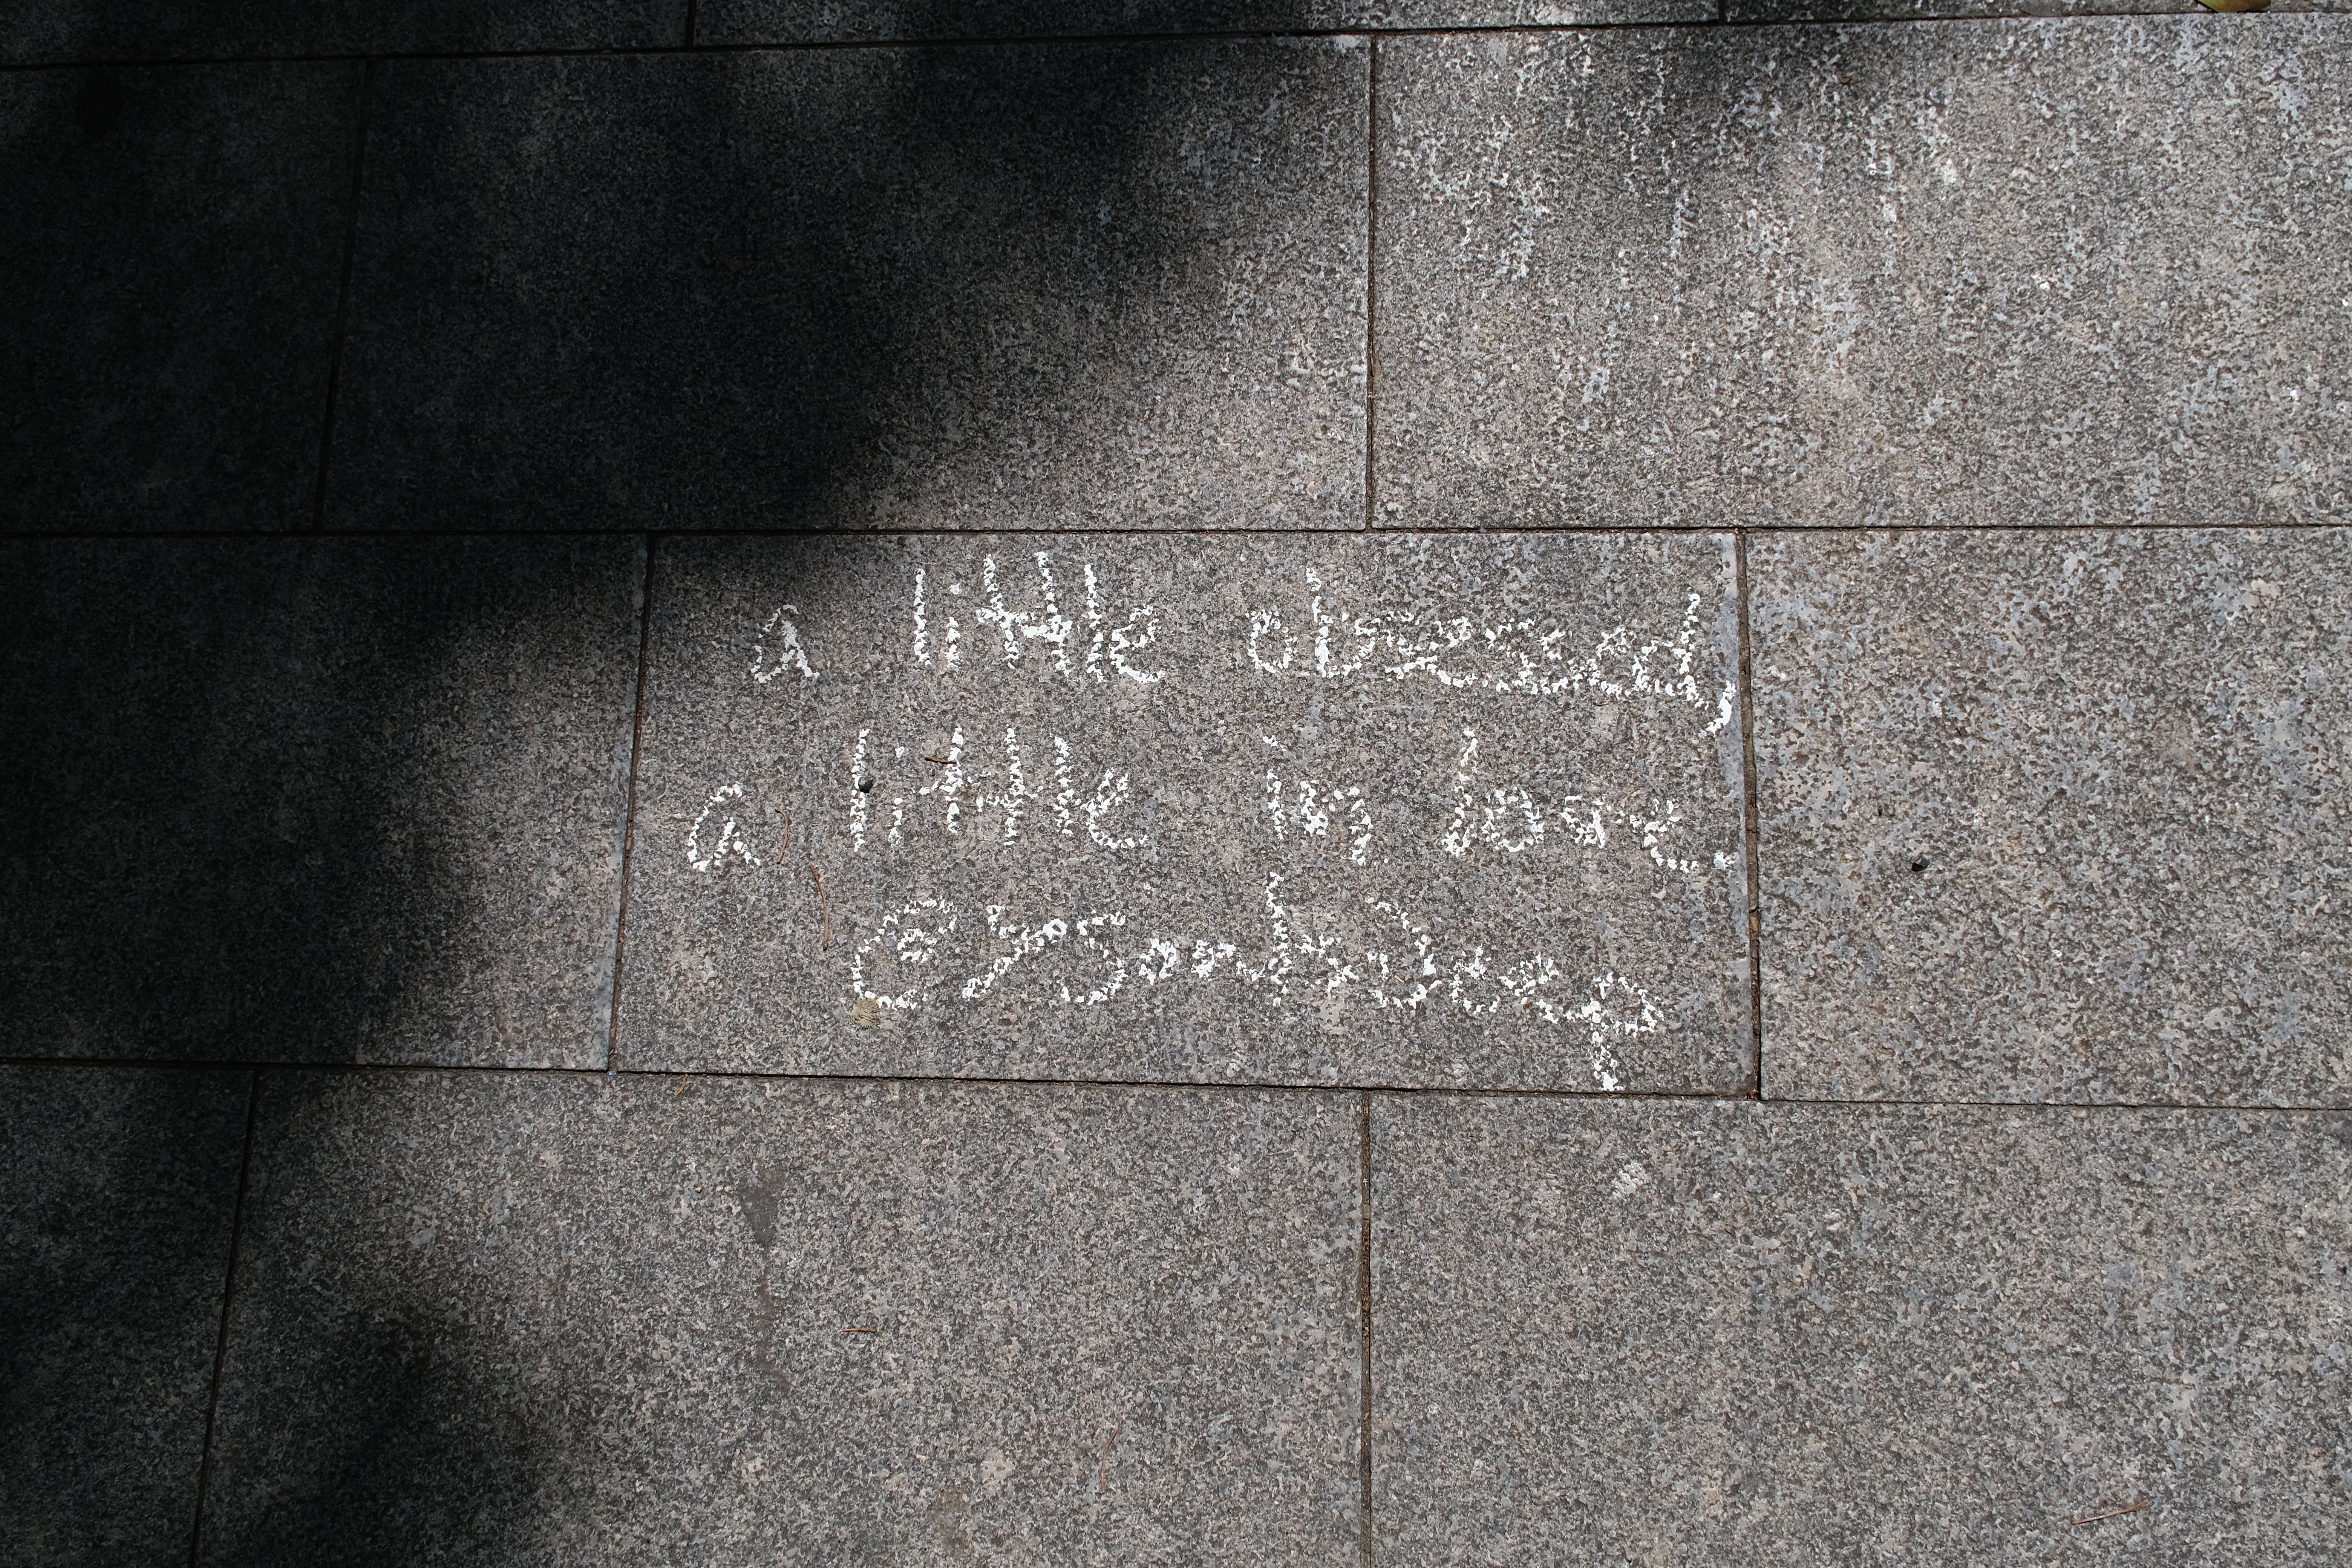 a little obsessed,
a little in love.